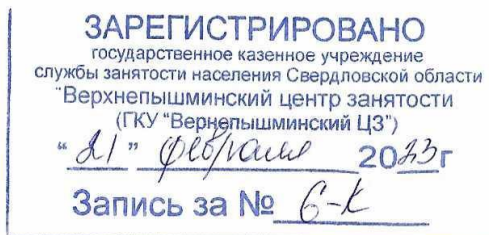 ЗАРЕГИСТРИРОВАНО
государственное казенное учреждение
службы занятости населения Свердловской области
"Верхнепышминский центр занятости
(ГКУ "Вернепышминский ЦЗ")
"21" февраля 2023г
Запись за № 6-К